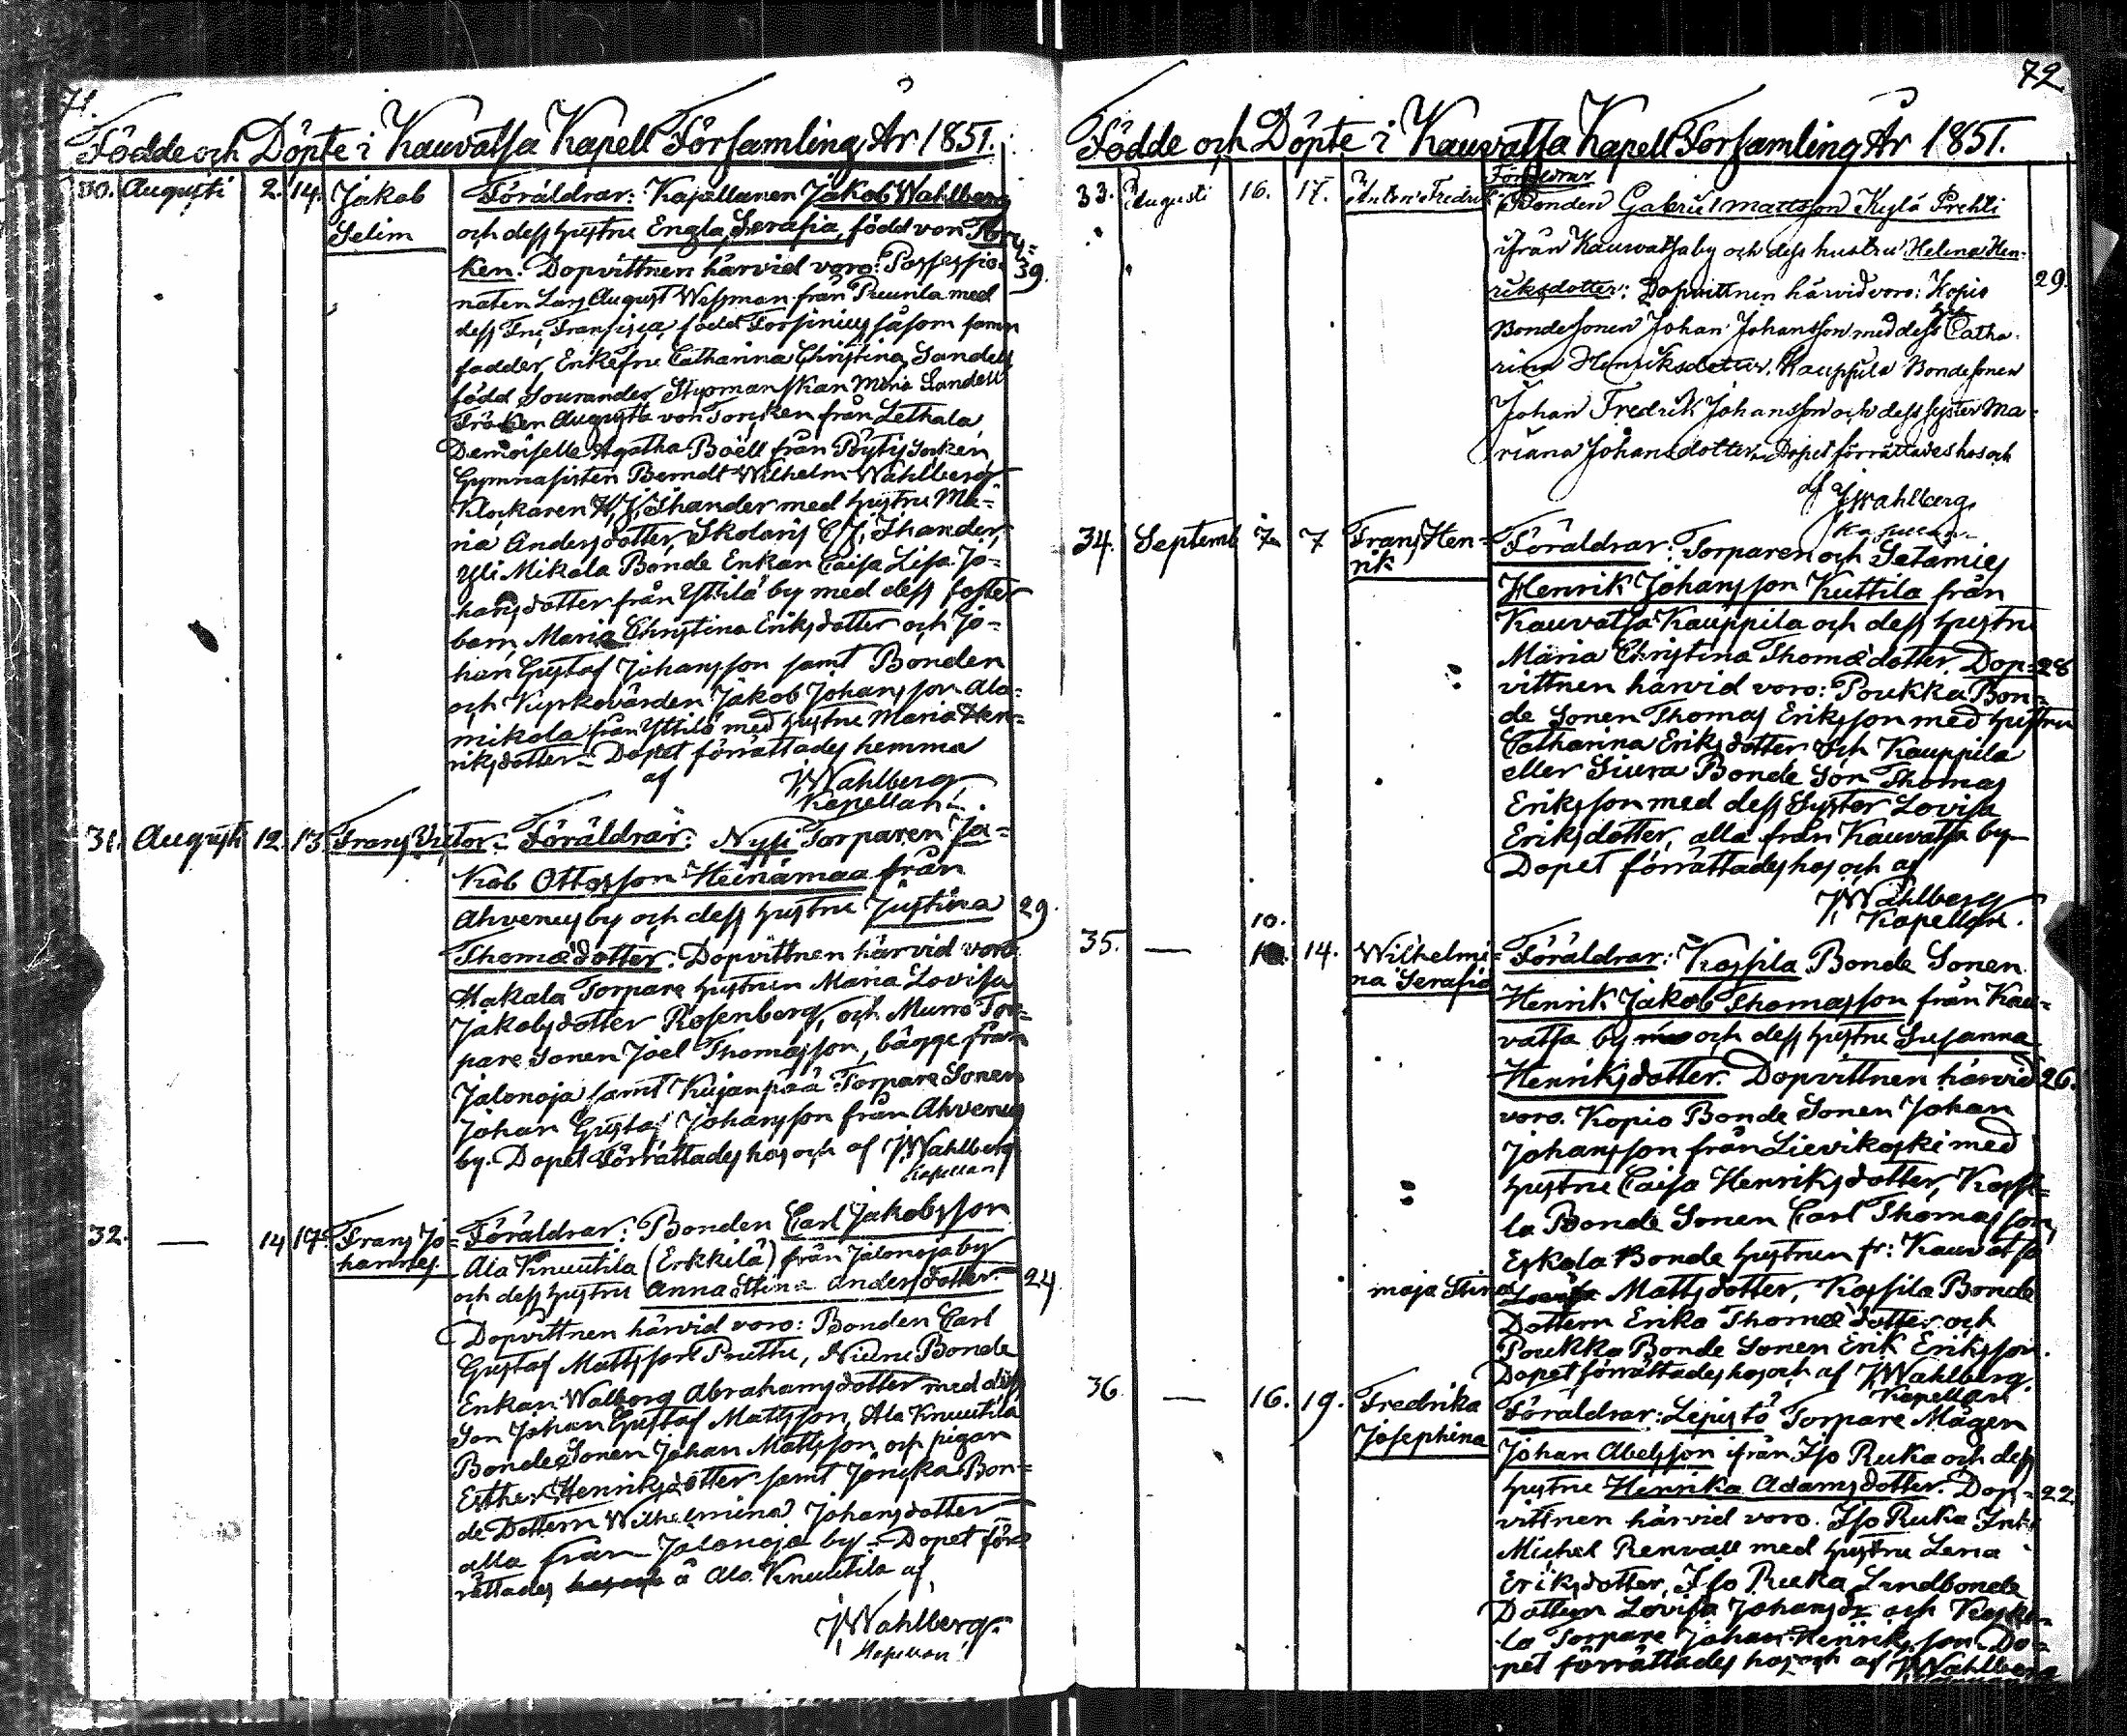 71.
Födde och Döpte i Kauvatsa Kapell Församling År 1851.
30. Augusti 2. 14. Jakob
Selim
Föräldrar: Kapellanen Jakob Wahlberg
och dess hustru Engla Serafia, född von Torc=
ken. Dopvittnen härvid voro: Possessio= 39.
naten Lars August Wessman från Puunla med
dess Fru Fransisca född Forsinius såsom samn
fadder, Enkefru Catharina Christina Sandell
född Sourander, Stipmanskan Maria Sandell
Fröken Augusta von Torcken från Lethala,
Demoiselle Agatha Boëll från Pöytis Socken,
Gymnasisten Berndt Wilhelm Wahlberg
Klockaren H. J. Ihander med hustru Ma=
ria Andersdotter, Skolaris C. J. Ihander,
Yli Mikola Bonde Enkan Caisa Lisa Jo=
hansdotter från Yttilä by med dess foster
barn Maria Christina Eriksdotter och Jo=
han Gustaf Johansson samt Bonden
och Kyrkovärden Jakob Johansson Ala=
mikola från Yttilä med hustru Maria Hen=
riksdotter. Dopet förrättades hemma
af JWahlberg
Kapellan.
31. Augusti 12. 13. Frans Victor. Föräldrar: Nysi Torparen Ja=
kob Ottosson Heinämaa från
Ahvenus by och dess hustru Justina 29.
Thomædotter. Dopvittnen härvid voro
Hakala Torpare hustrun Maria Lovisa
Jakobsdotter Rosenberg, och Murro Tor=
pare Sonen Joel Thomasson, bägge från
Jalonoja samt Kujanpää Torpare Sonen
Johan Gustaf Johansson från Ahvenus
by. Dopet förrättades hos och af JWahlberg
Kapellan
32. — 14 17. Frans Jo=
hannes.
Föräldrar: Bonden Carl Jakobsson
Ala Knuutila (Erkkilä) från Jalonoja by
och dess hustru Anna Stina Andersdotter. 24
Dopvittnen härvid voro: Bonden Carl
Gustaf Mattsson Pruttu, Niuru Bonde
Enkan Walborg Abrahamsdotter med dess
Son Johan Gustaf Mattsson, Ala Knuutila
Bonde Sonen Johan Mattsson och pigan
Esther Henriksdotter samt Jöncka Bon=
de Dottern Wilhelmina Johansdotter
alla från Jalonoja by. Dopet för=
rättades hos och å Ala Knuutila af
JWahlberg.
Kapellan
72
Födde och Döpte i Kauvatsa Kapell Församling År 1851.
33. Augusti 16. 17. Anton Fredrik
Föräldrar
Bonden Gabriel Mattsson Kylä Prehti
ifrån Kauvatsa by och dess hustru Helena Hen=
riksdotter: Dopvittnen härvid voro: Kopio 29.
Bonde Sonen Johan Johansson med dess hu Catha=
rina Henriksdotter, Kauppila Bonde Sonen
Johan Fredrik Johansson och dess syster Ma=
riana Johansdotter. Dopet förrättades hos och
af JWahlberg
Kapellan
34. Septemb 7 7 Frans Hen=
rik
Föräldrar: Torparen och Setämies
Henrik Johansson Kuttila från
Kauvatsa Kauppila och dess hustru
Maria Christina Thomædotter. Dop= 28
vittnen härvid voro: Poukka Bon=
de Sonen Thomas Eriksson med hustru
Catharina Eriksdotter och Kauppila
eller Siura Bonde Son Thomas
Eriksson med dess Syster Lovisa
Eriksdotter, alla från Kauvatsa by
Dopet förrättades hos och af
JWahlberg
Kapellan.
35. — 10. 14. Wilhelmi=
na Serafia
Föräldrar: Kossila Bonde Sonen
Henrik Jakob Thomasson från Kau=
vatsa by och dess hustru Susanna
Henriksdotter. Dopvittnen härvid 26.
voro. Kopio Bonde Sonen Johan
Johansson från Lievikoski med
hustru Caisa Henriksdotter, Kossi=
la Bonde Sonen Carl Thomasson,
Eskola Bonde hustrun fr: Kauvatsa
Maja Stina Lovisa Mattsdotter, Kossila Bonde
Dottern Erika Thomædotter och
Poukka Bonde Sonen Erik Eriksson.
Dopet förrättades hos och af JWahlberg
Kapellan
36. — 16. 19. Fredrika
Josephina
Föräldrar: Lepistö Torpare Mågen
Johan Abelsson ifrån Iso Ruka och dess
hustru Henrika Adamsdotter. Dop= 22.
vittnen härvid voro. Iso Ruka Inh:
Michel Renvall med hustru Lena
Eriksdotter, Iso Ruka Landbonde
Dottern Lovisa Johansdr och Koski=
la Torpare Johan Henriksson. Do=
pet förrättades hos och af JWahlberg